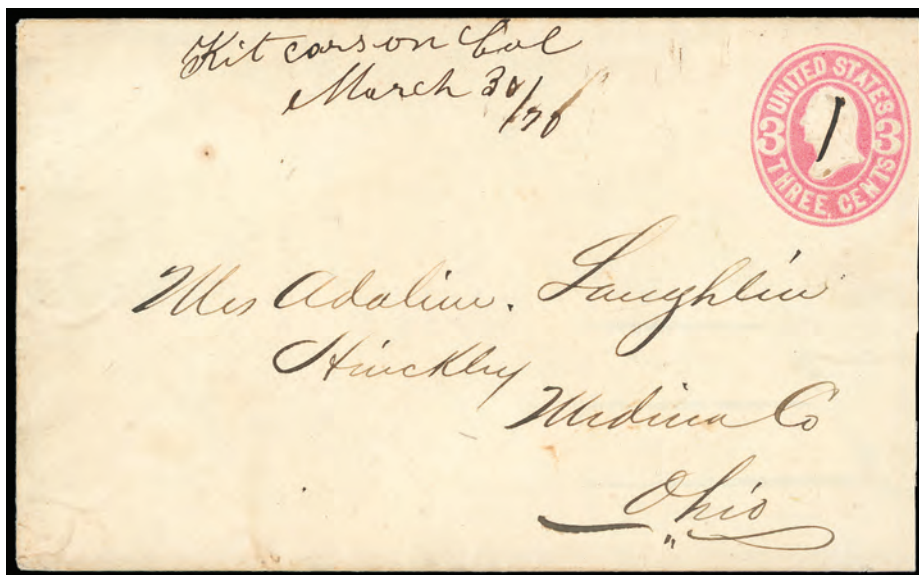 Kit carson Col
March 30/70
UNITED STATES
3 3
THREE CENTS
Mrs Adaline. Laughlin
Hinckley
Medina Co
Ohio